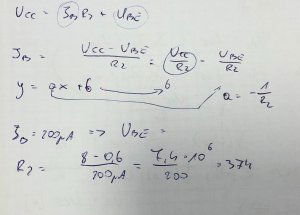 Ucc = IB R2 + UBE
IB = Ucc - UBE / R2 = Ucc / R2 - UBE / R2
y = ax + b → b a = - 1 / R2
IB = 200µA => UBE =
R2 = 8 - 0,6 / 200µA = 7,4 · 10^6 / 200 = 37k